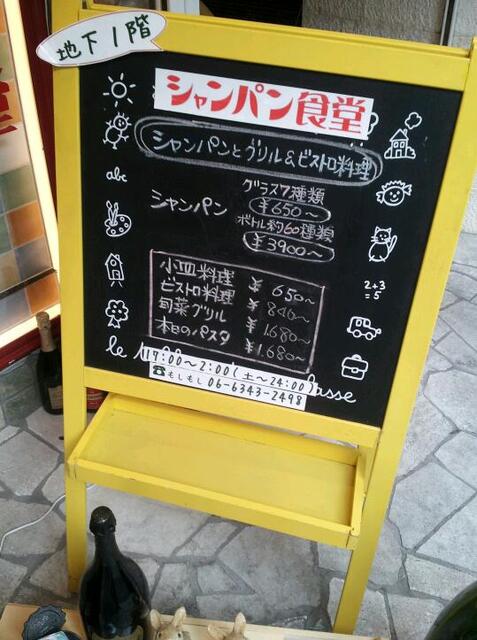 地下1階
シャンパン食堂
シャンパンとグリル&ビストロ料理
abc
シャンパン
グラス7種類
¥650~
ボトル約60種類
¥3900~
2+3
=5
小皿料理 ¥650~
ビストロ料理 ¥840~
旬菜グリル ¥1,680~
本日のパスタ ¥1,680~
le
asse
17:00~2:00(土~24:00)
☎もしもし 06-6343-2498